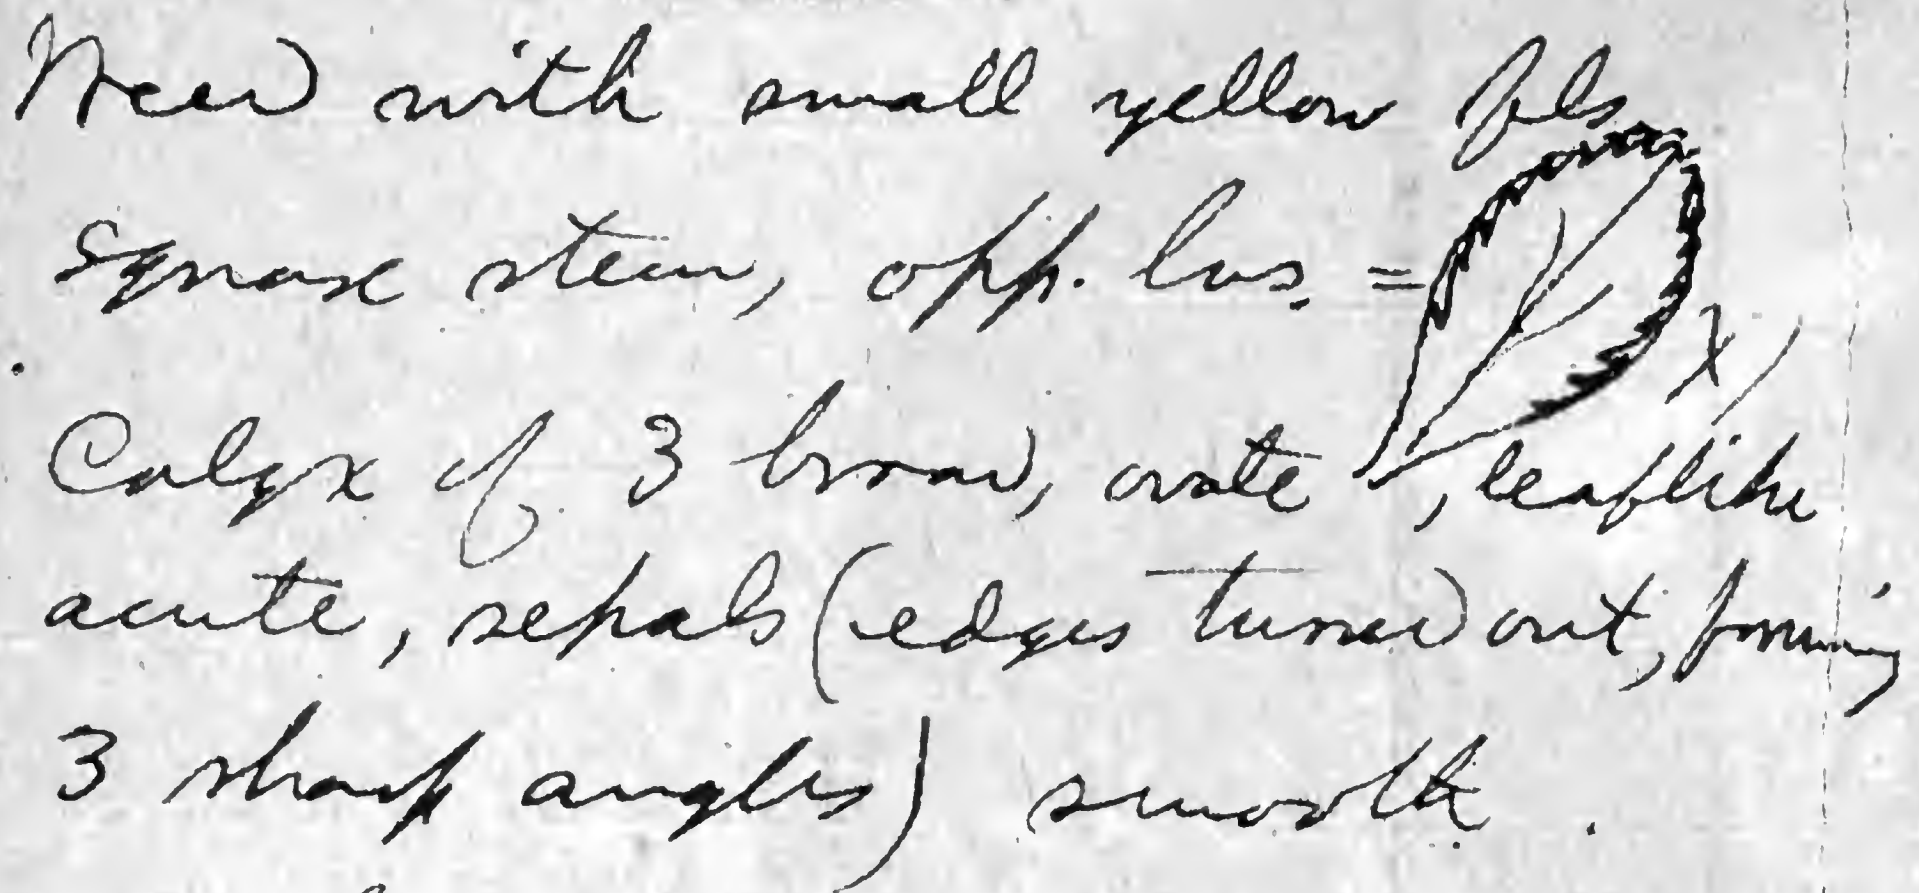 Weed with small yellow fls
Square stem, opp. lvs. =
x
Calyx of 3 broad, ovate, leaflike
acute, sepals (edges turned out, forming
3 sharp angles) smooth.